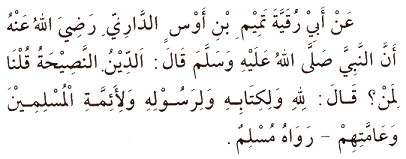 عَنْ أَبِيْ رُقَيَّةَ تَمِيْمِ بْنِ أَوْسٍ الدَّارِيِّ رَضِيَ اللهُ عَنْهُ
أَنَّ النَّبِيَّ صَلَّى اللهُ عَلَيْهِ وَسَلَّمَ قَالَ: الدِّيْنُ النَّصِيْحَةُ قُلْنَا
لِمَنْ؟ قَالَ: لِلّٰهِ وَلِكِتَابِهِ وَلِرَسُوْلِهِ وَلِأَئِمَّةِ الْمُسْلِمِيْنَ
وَعَامَّتِهِمْ – رَوَاهُ مُسْلِمٌ.